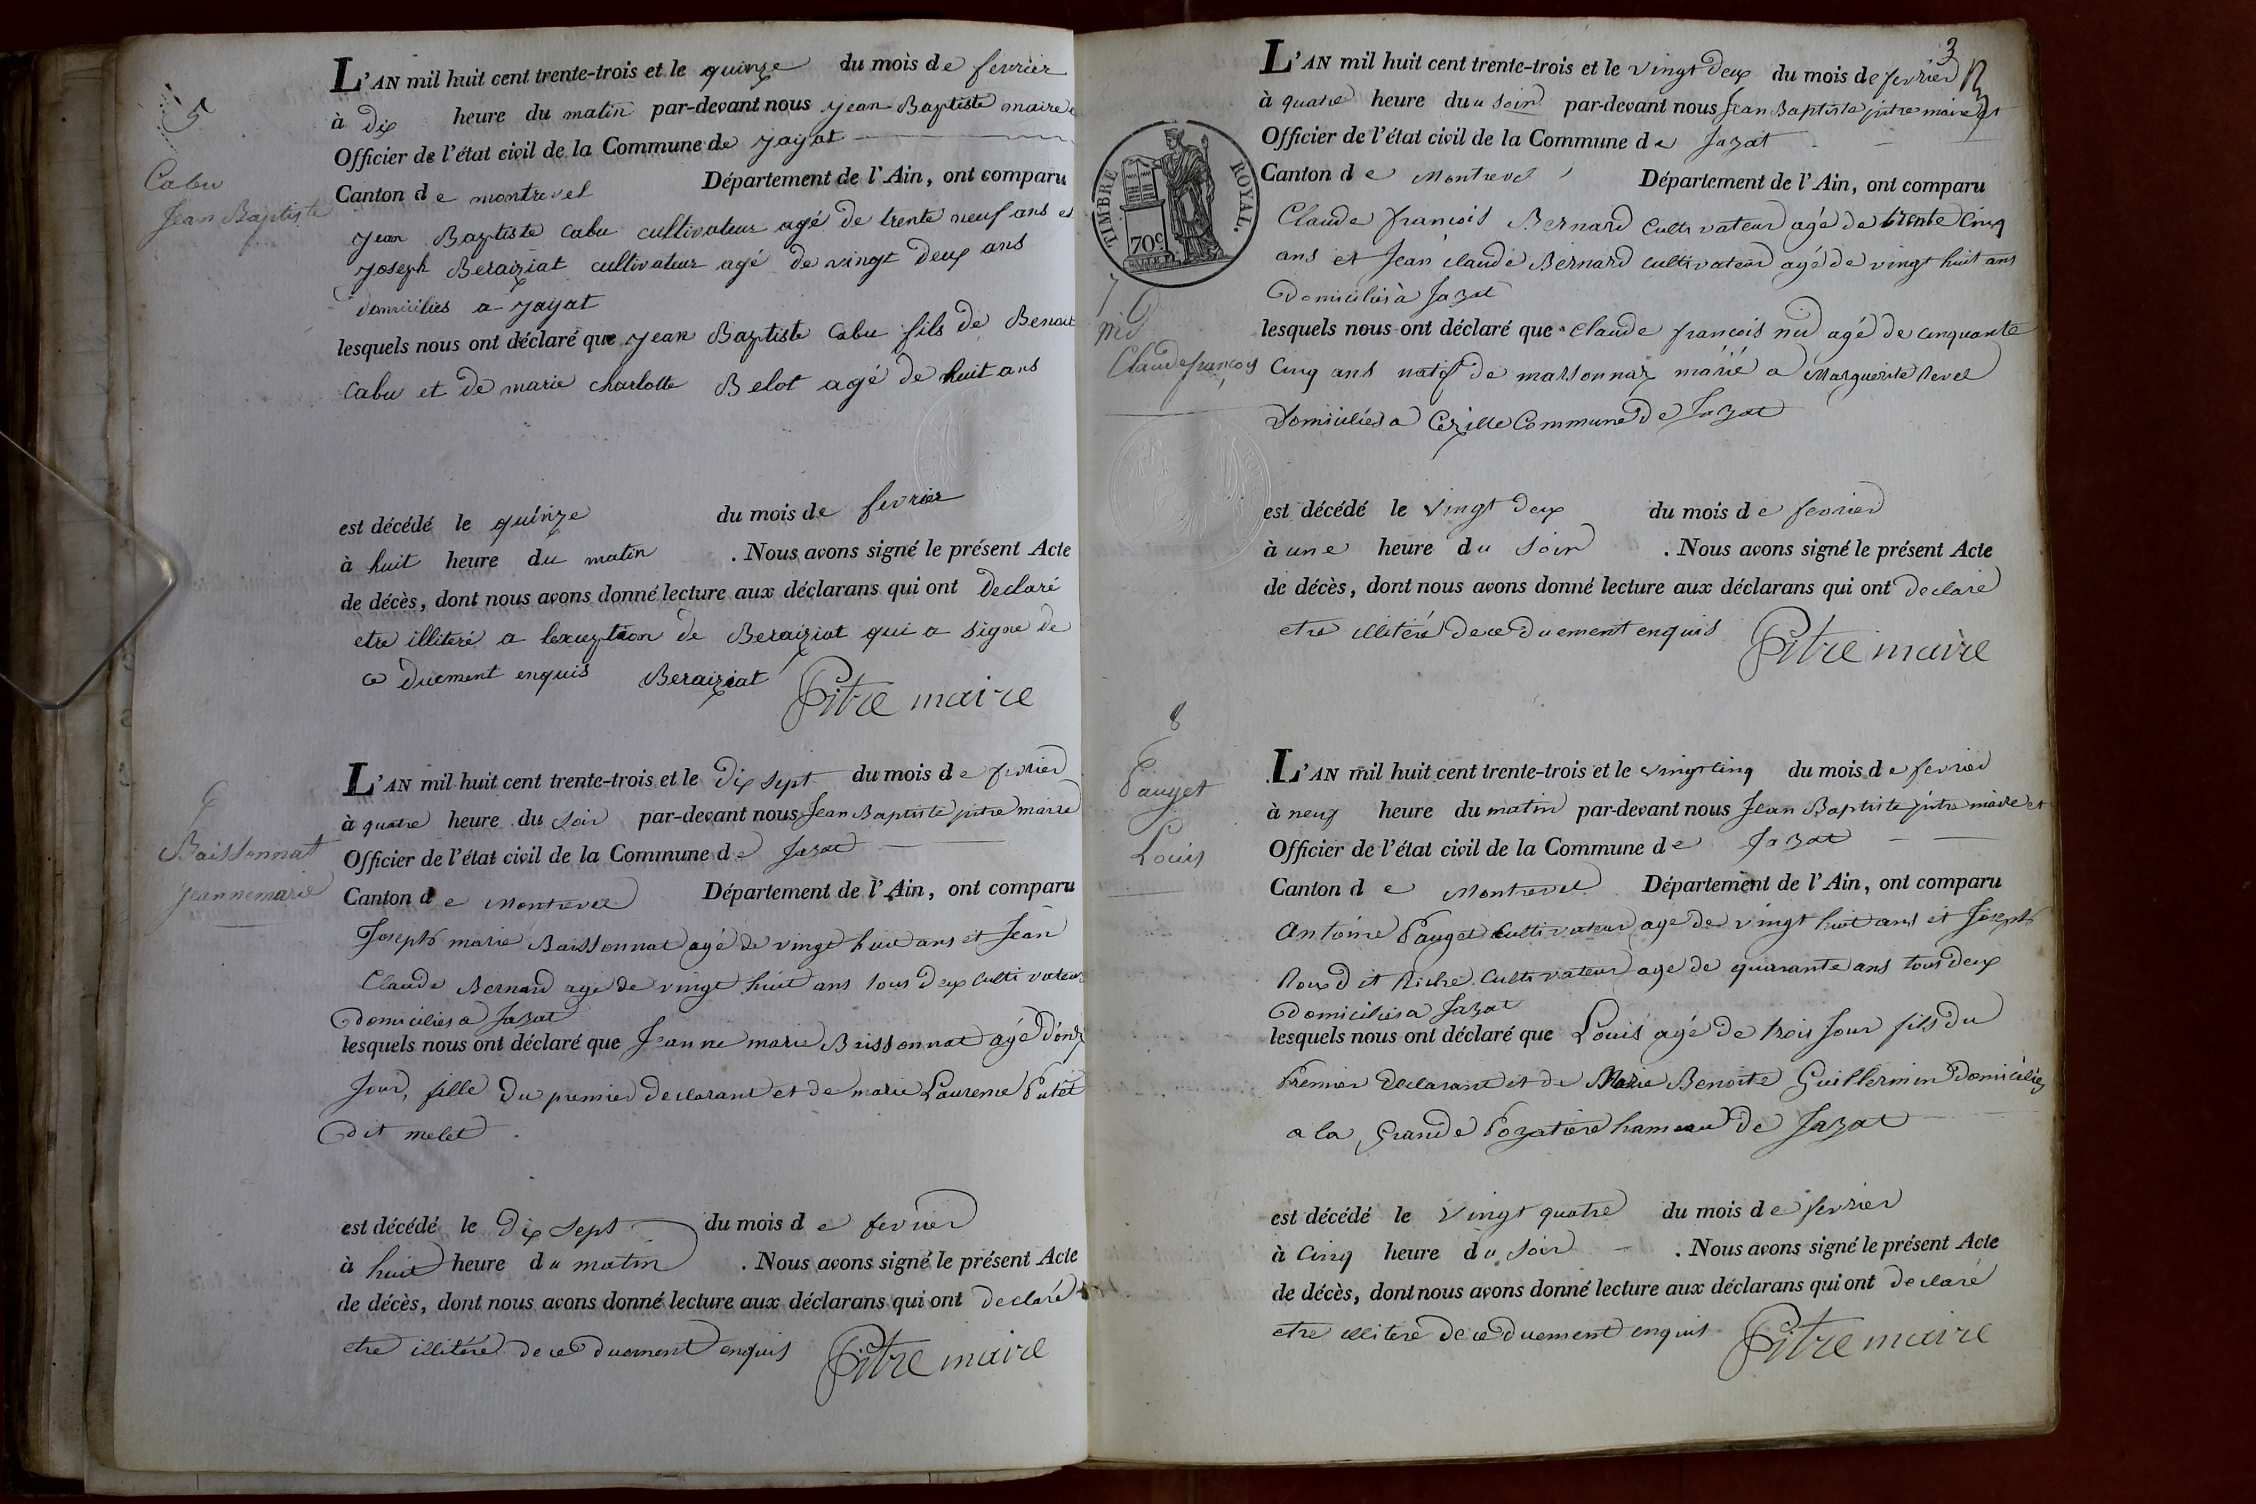 5
Cabu
Jean Baptiste
L'AN mil huit cent trente-trois et le quinze du mois de fevrier
à dix heure du matin par-devant nous Jean Baptiste maire
Officier de l'état civil de la Commune de Jayat
Canton de montrevel Département de l'Ain, ont comparu
Jean Baptiste Cabu cultivateur agé de trente neuf ans et
Joseph Beraiziat cultivateur agé de vingt deux ans
domicilies a Jayat
lesquels nous ont déclaré que Jean Baptiste Cabu fils de Benoit
Cabu et de marie charlotte Belot agé de huit ans
est décédé le quinze du mois de fevrier
à huit heure du matin . Nous avons signé le présent Acte
de décès, dont nous avons donné lecture aux déclarans qui ont declaré
etre illiteré a lexception de Beraiziat qui a signé de
ce duement enquis Beraiziat Pitre maire
6
Baissonnat
Jeanne marie
L'AN mil huit cent trente-trois et le dix sept du mois de fevrier
à quatre heure du soir par-devant nous Jean Baptiste pitre maire
Officier de l'état civil de la Commune de Jayat
Canton de Montrevel Département de l'Ain, ont comparu
Joseph marie Baissonnat agé de vingt huit ans et Jean
Claude Bernard agé de vingt huit ans tous deux cultivateur
domicilies a Jayat
lesquels nous ont déclaré que Jeanne marie Baissonnat agé d'onze
Jour, fille du premier declarant et de marie Laurence Putet
dit melet
est décédé le dix sept du mois de fevrier
à huit heure du matin . Nous avons signé le présent Acte
de décès, dont nous avons donné lecture aux déclarans qui ont declaré
etre illitéré de ce duement enquis Pitre maire
3
TIMBRE ROYAL.
70c
7
nid
Claude francois
L'AN mil huit cent trente-trois et le vingt deux du mois de fevrier
à quatre heure du soir par-devant nous Jean Baptiste pitre maire et
Officier de l'état civil de la Commune de Jayat
Canton de Montrevel Département de l'Ain, ont comparu
Claude francois Bernard cultivateur agé de trente cinq
ans et Jean claude Bernard cultivateur agé de vingt huit ans
domiciliés à Jayat
lesquels nous ont déclaré que claude francois nid agé de cinquante
cinq ans natif de marsonnaz marié a Marguerite Revel
domiciliés a Cezille Commune de Jayat
est décédé le vingt deux du mois de fevrier
à une heure du soir . Nous avons signé le présent Acte
de décès, dont nous avons donné lecture aux déclarans qui ont declaré
etre illiteré de ce duement enquis Pitre maire
8
Pauget
Louis
L'AN mil huit cent trente-trois et le vingt cinq du mois de fevrier
à neuf heure du matin par-devant nous Jean Baptiste pitre maire et
Officier de l'état civil de la Commune de Jayat
Canton de Montrevel Département de l'Ain, ont comparu
Antoine Pauget cultivateur agé de vingt huit ans et Joseph
Roux dit Riche cultivateur agé de quarante ans tous deux
domicilies a Jayat
lesquels nous ont déclaré que Louis agé de trois Jour fils du
Premier declarant et de Marie Benoite Guillermin domiciliés
a la grande Pozatiere hameau de Jayat
est décédé le vingt quatre du mois de fevrier
à cinq heure du soir . Nous avons signé le présent Acte
de décès, dont nous avons donné lecture aux déclarans qui ont declaré
etre illiteré de ce duement enquis Pitre maire